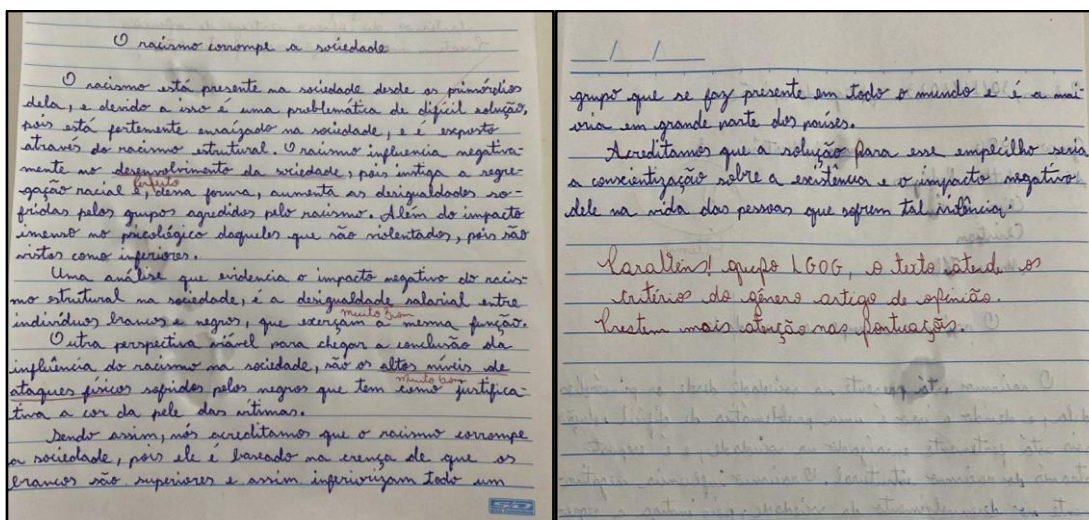 O racismo corrompe a sociedade
O racismo está presente na sociedade desde os primórdios
dela, e devido a isso é uma problemática de difícil solução,
pois está fortemente enraizado na sociedade, e é exposto
através do racismo estrutural. O racismo influencia negativa-
mente no desenvolvimento da sociedade, pois instiga a segre-
perfeito
gação racial e, dessa forma, aumenta as desigualdades so-
fridas pelos grupos agredidos pelo racismo. Além do impacto
imenso no psicológico daqueles que são violentados, pois são
vistos como inferiores.
Uma análise que evidencia o impacto negativo do racis-
mo estrutural na sociedade, é a desigualdade salarial entre
indivíduos brancos e negros, que exerçam a mesma função.
muito bom
Outra perspectiva viável para chegar a conclusão da
influência do racismo na sociedade, são os altos níveis de
ataques físicos sofridos pelos negros que tem como justifica-
muito bom
tiva a cor da pele das vítimas.
Sendo assim, nós acreditamos que o racismo corrompe
a sociedade, pois ele é baseado na crença de que os
brancos são superiores e assim inferiorizam todo um
/ /
grupo que se faz presente em todo o mundo e é a mai-
oria em grande parte dos países.
Acreditamos que a solução para esse empecilho seria
a conscientização sobre a existência e o impacto negativo
dele na vida das pessoas que sofrem tal violência.
Parabéns! grupo LGOG, o texto atende os
critérios do gênero artigo de opinião.
Prestem mais atenção nas pontuações.